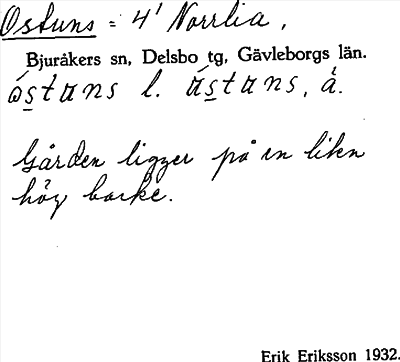 Ostuns = 4¹ Norrlia.
Bjuråkers sn, Delsbo tg, Gävleborgs län.
l. å.
Gården ligger på en liten
hög backe.
Erik Eriksson 1932.